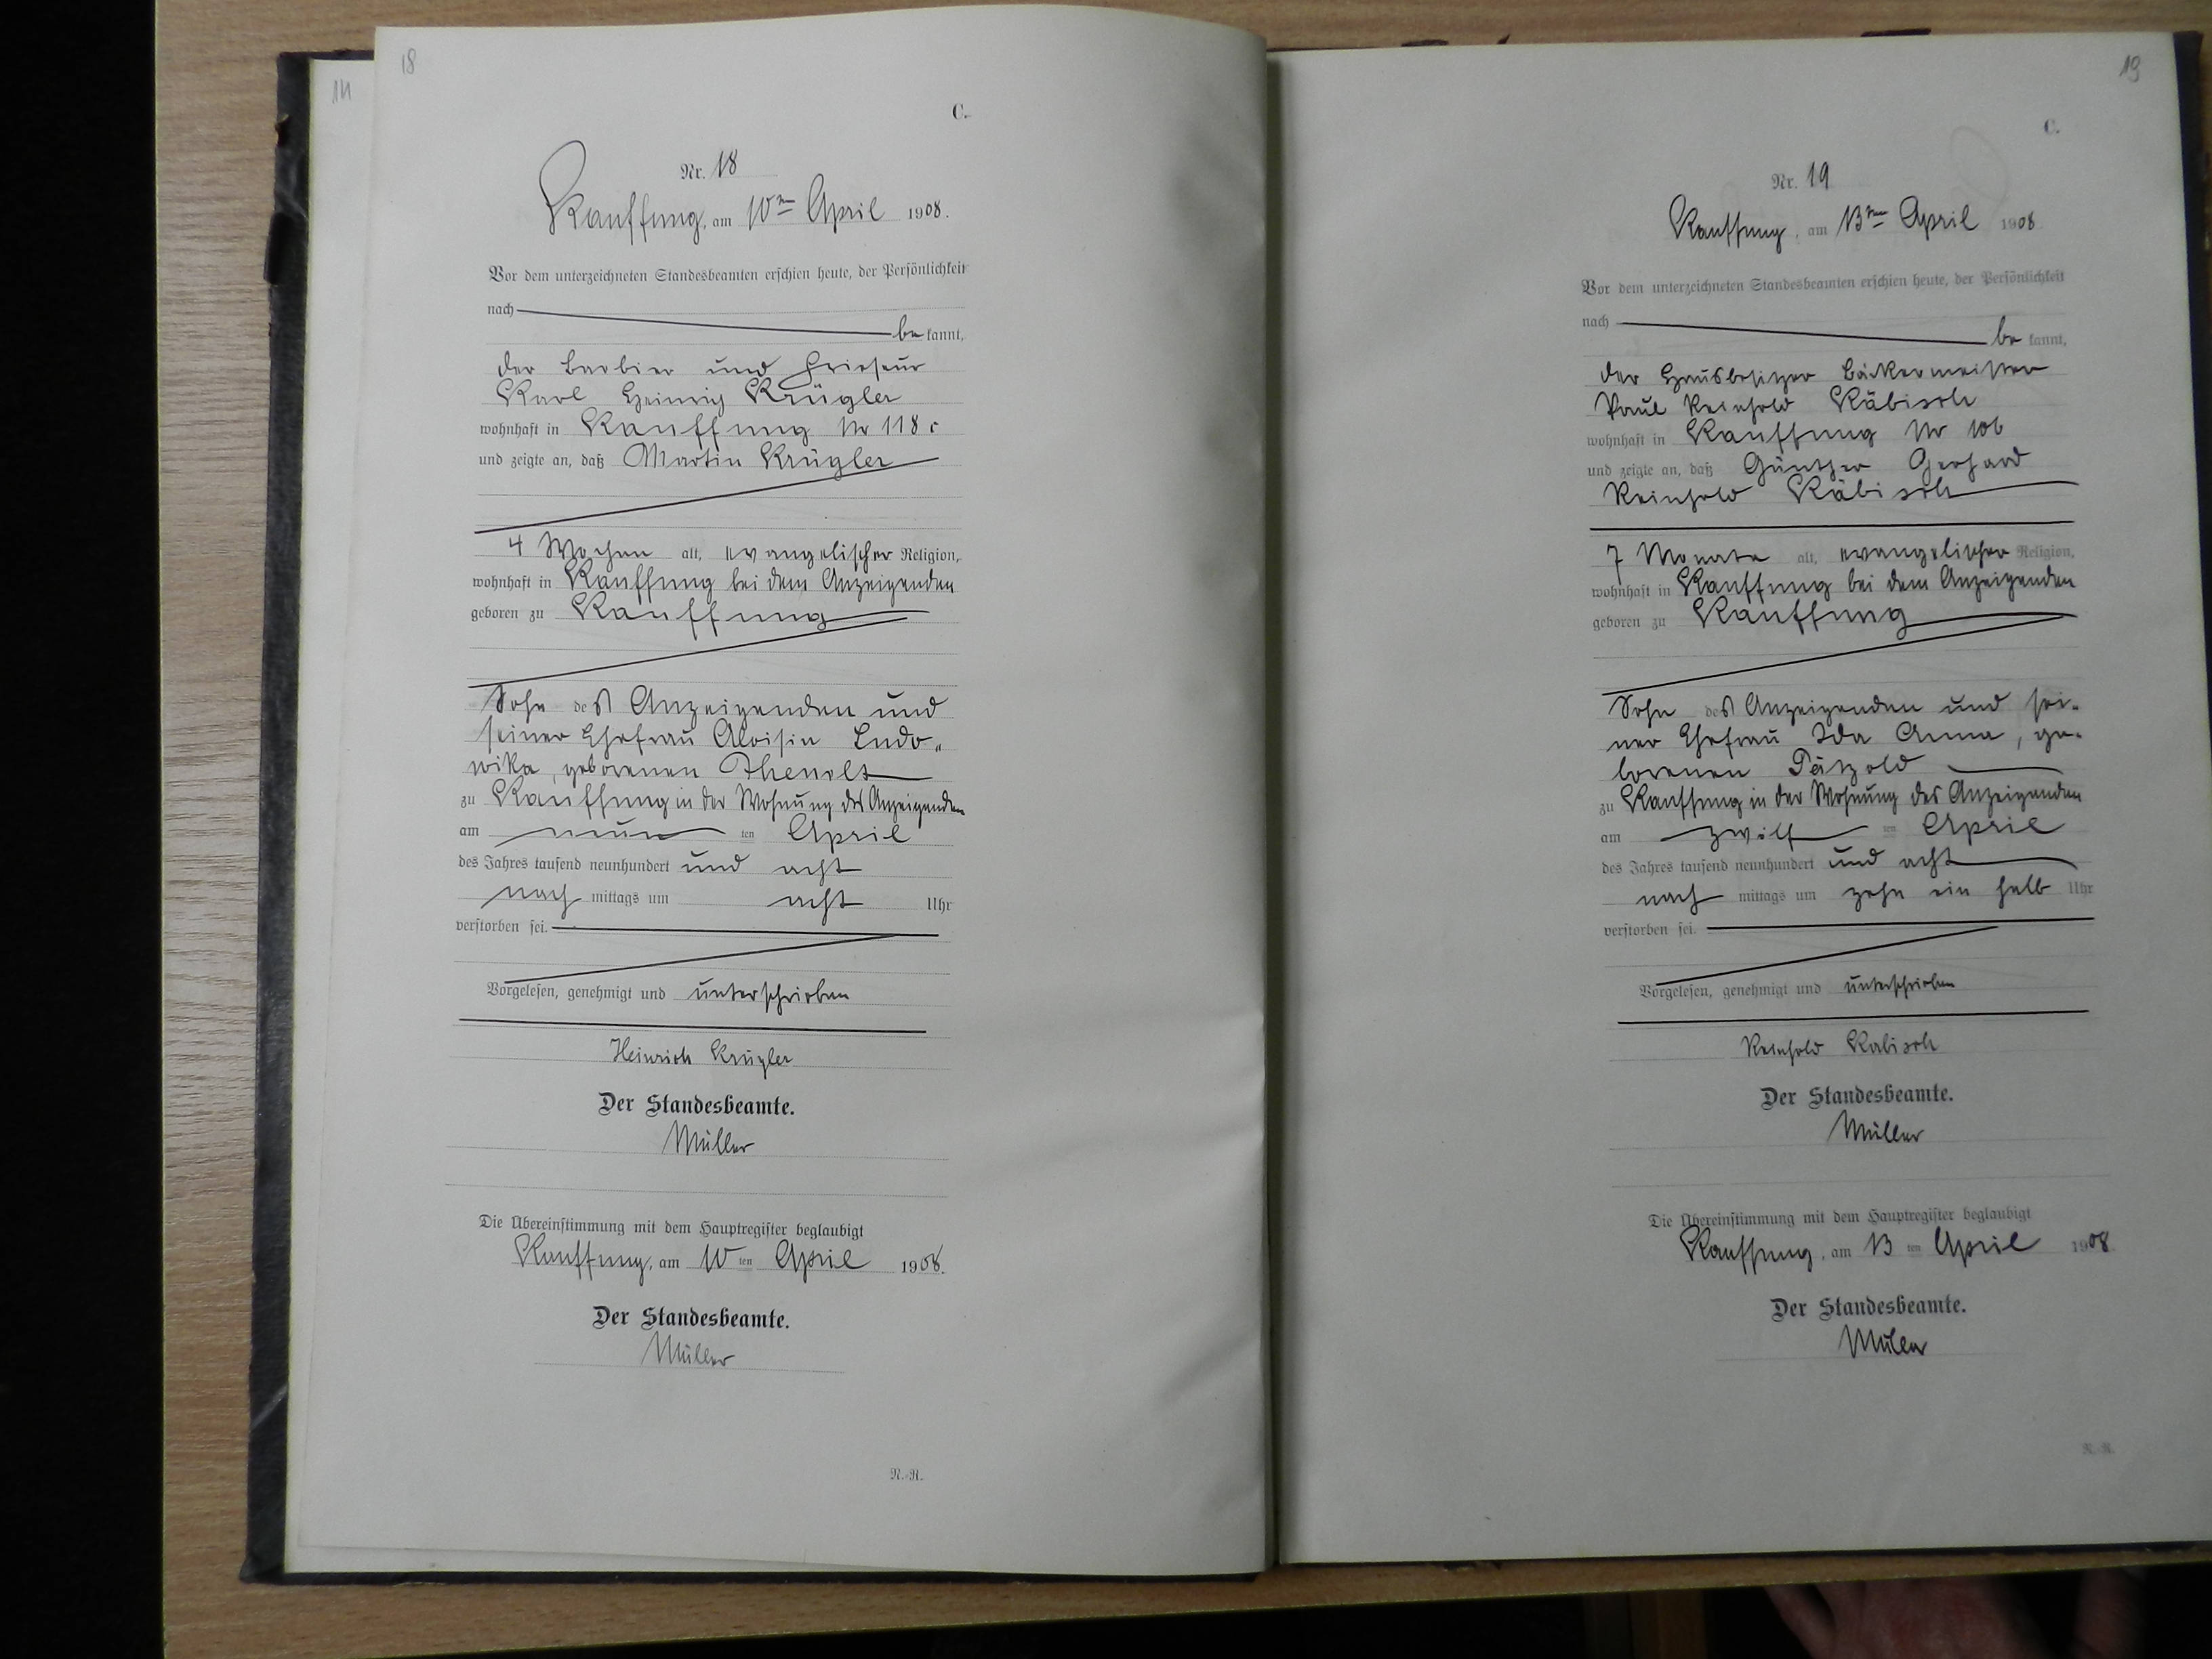 14
18
C.
Nr. 18
Kauffung, am 10ten April 1908.
Vor dem unterzeichneten Standesbeamten erschien heute, der Persönlichkeit
nach
be kannt,
der Barbier und Friseur
Karl Heinrich Krügler
wohnhaft in Kauffung Nr 118c
und zeigte an, daß Martin Krügler
4 Wochen alt, evangelischer Religion,
wohnhaft in Kauffung bei dem Anzeigenden
geboren zu Kauffung
Sohn des Anzeigenden und
seiner Ehefrau Aloisia Ludo„
wika, geborenen
zu Kauffung in der Wohnung des Anzeigenden
am neun ten April
des Jahres tausend neunhundert und acht
nach mittags um acht Uhr
verstorben sei.
Vorgelesen, genehmigt und unterschrieben
Heinrich Krügler
Der Standesbeamte.
Müller
Die Übereinstimmung mit dem Hauptregister beglaubigt
Kauffung, am 10 ten April 1908.
Der Standesbeamte.
Müller
R.-R.
19
C.
Nr. 19
Kauffung, am 13ten April 1908
Vor dem unterzeichneten Standesbeamten erschien heute, der Persönlichkeit
nach
be kannt,
der Hausbesitzer Bäckermeister
Paul Reinhold Käbisch
wohnhaft in Kauffung Nr 106
und zeigte an, daß Günther Gerhard
Reinhold Käbisch
7 Monate alt, evangelischer Religion,
wohnhaft in Kauffung bei dem Anzeigenden
geboren zu Kauffung
Sohn des Anzeigenden und sei-
ner Ehefrau Ida Anna, ge-
borenen Pätzold
zu Kauffung in der Wohnung des Anzeigenden
am zwölf ten April
des Jahres tausend neunhundert und acht
nach mittags um zehn ein halb Uhr
verstorben sei.
Vorgelesen, genehmigt und unterschrieben
Reinhold Käbisch
Der Standesbeamte.
Müller
Die Übereinstimmung mit dem Hauptregister beglaubigt
Kauffung, am 13 ten April 1908.
Der Standesbeamte.
Müller
R.-R.